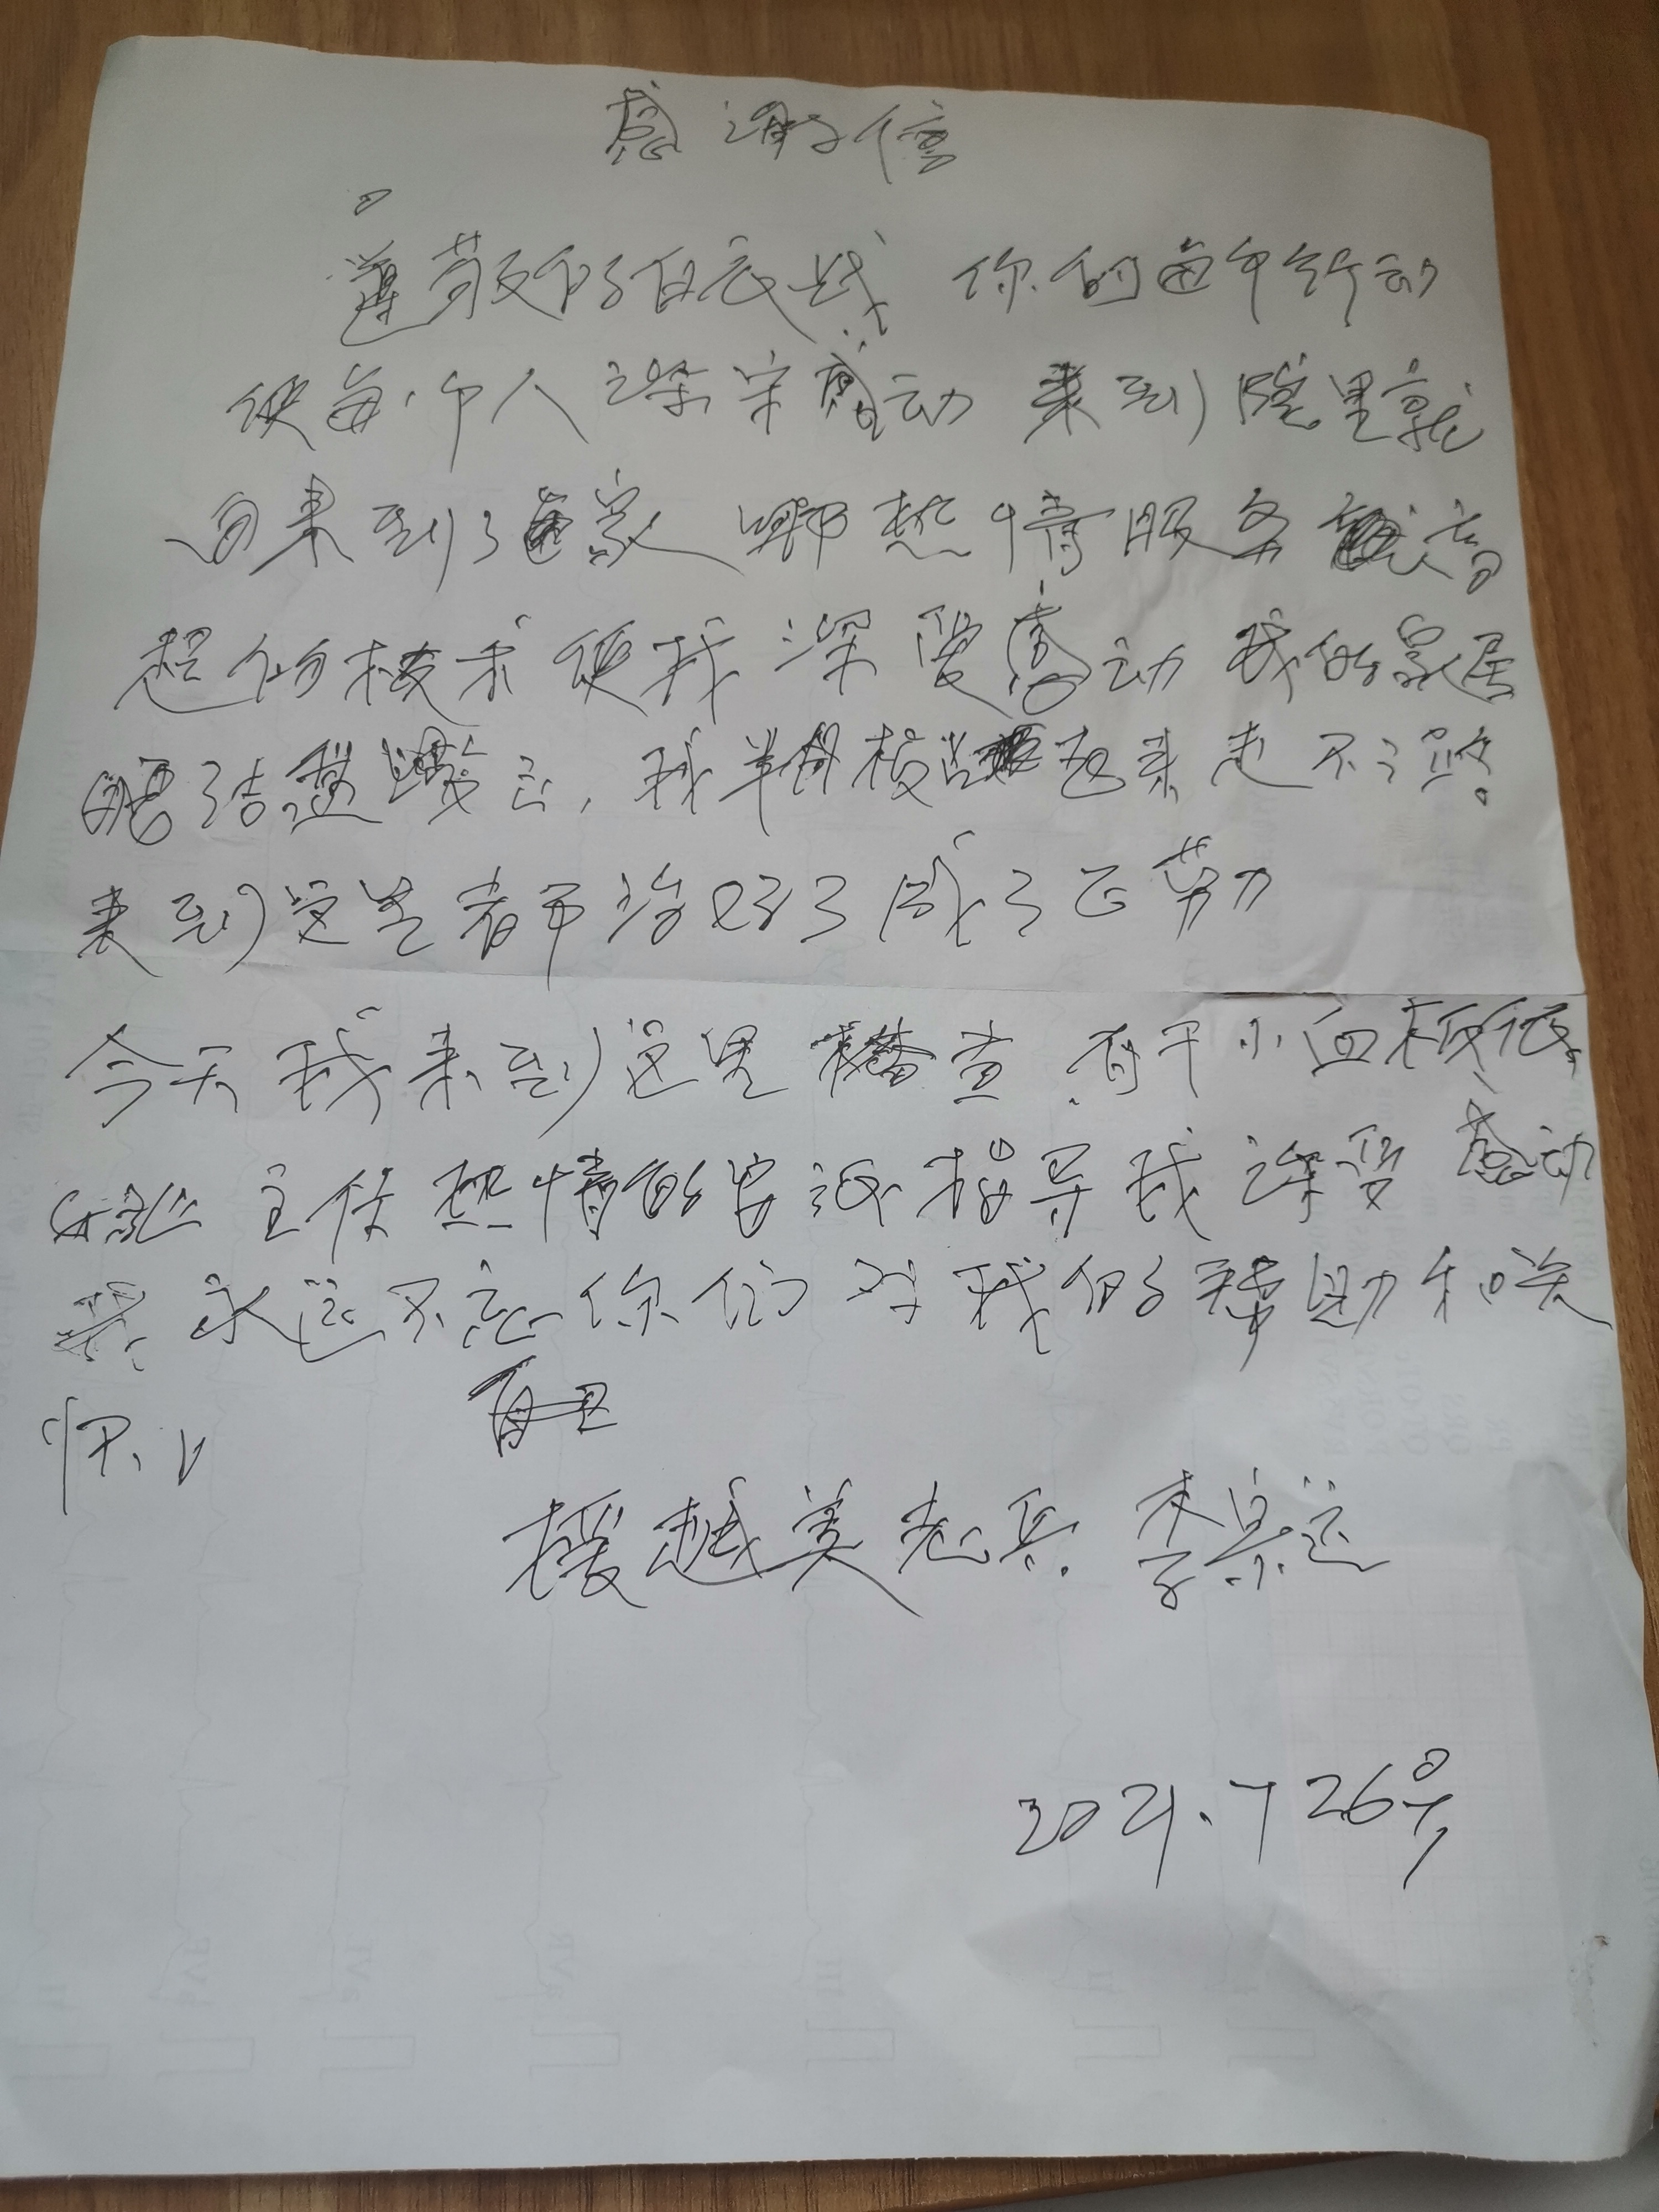 感谢信
尊敬的白衣战 你们的每个行动
使每个人深深感动 来到院里就
向来到了家 那热情服务高
超的技术使我深受感动 我的家属
我半月板起来走不了路
来到这里都治好了成了正劳力
今天我来到这里检查 有干小血板低
主任热情的指导我深受感动
我永远不忘你们对我的帮助和关
怀
援越美老兵 李宗运
2021.7 26号